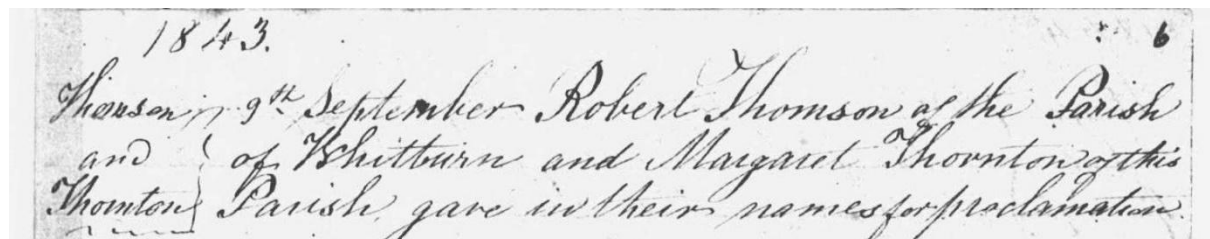 1843. 6
Thomson 9th September Robert Thomson of the Parish
and of Whitburn and Margaret Thornton of this
Thornton Parish gave in their names for proclamation